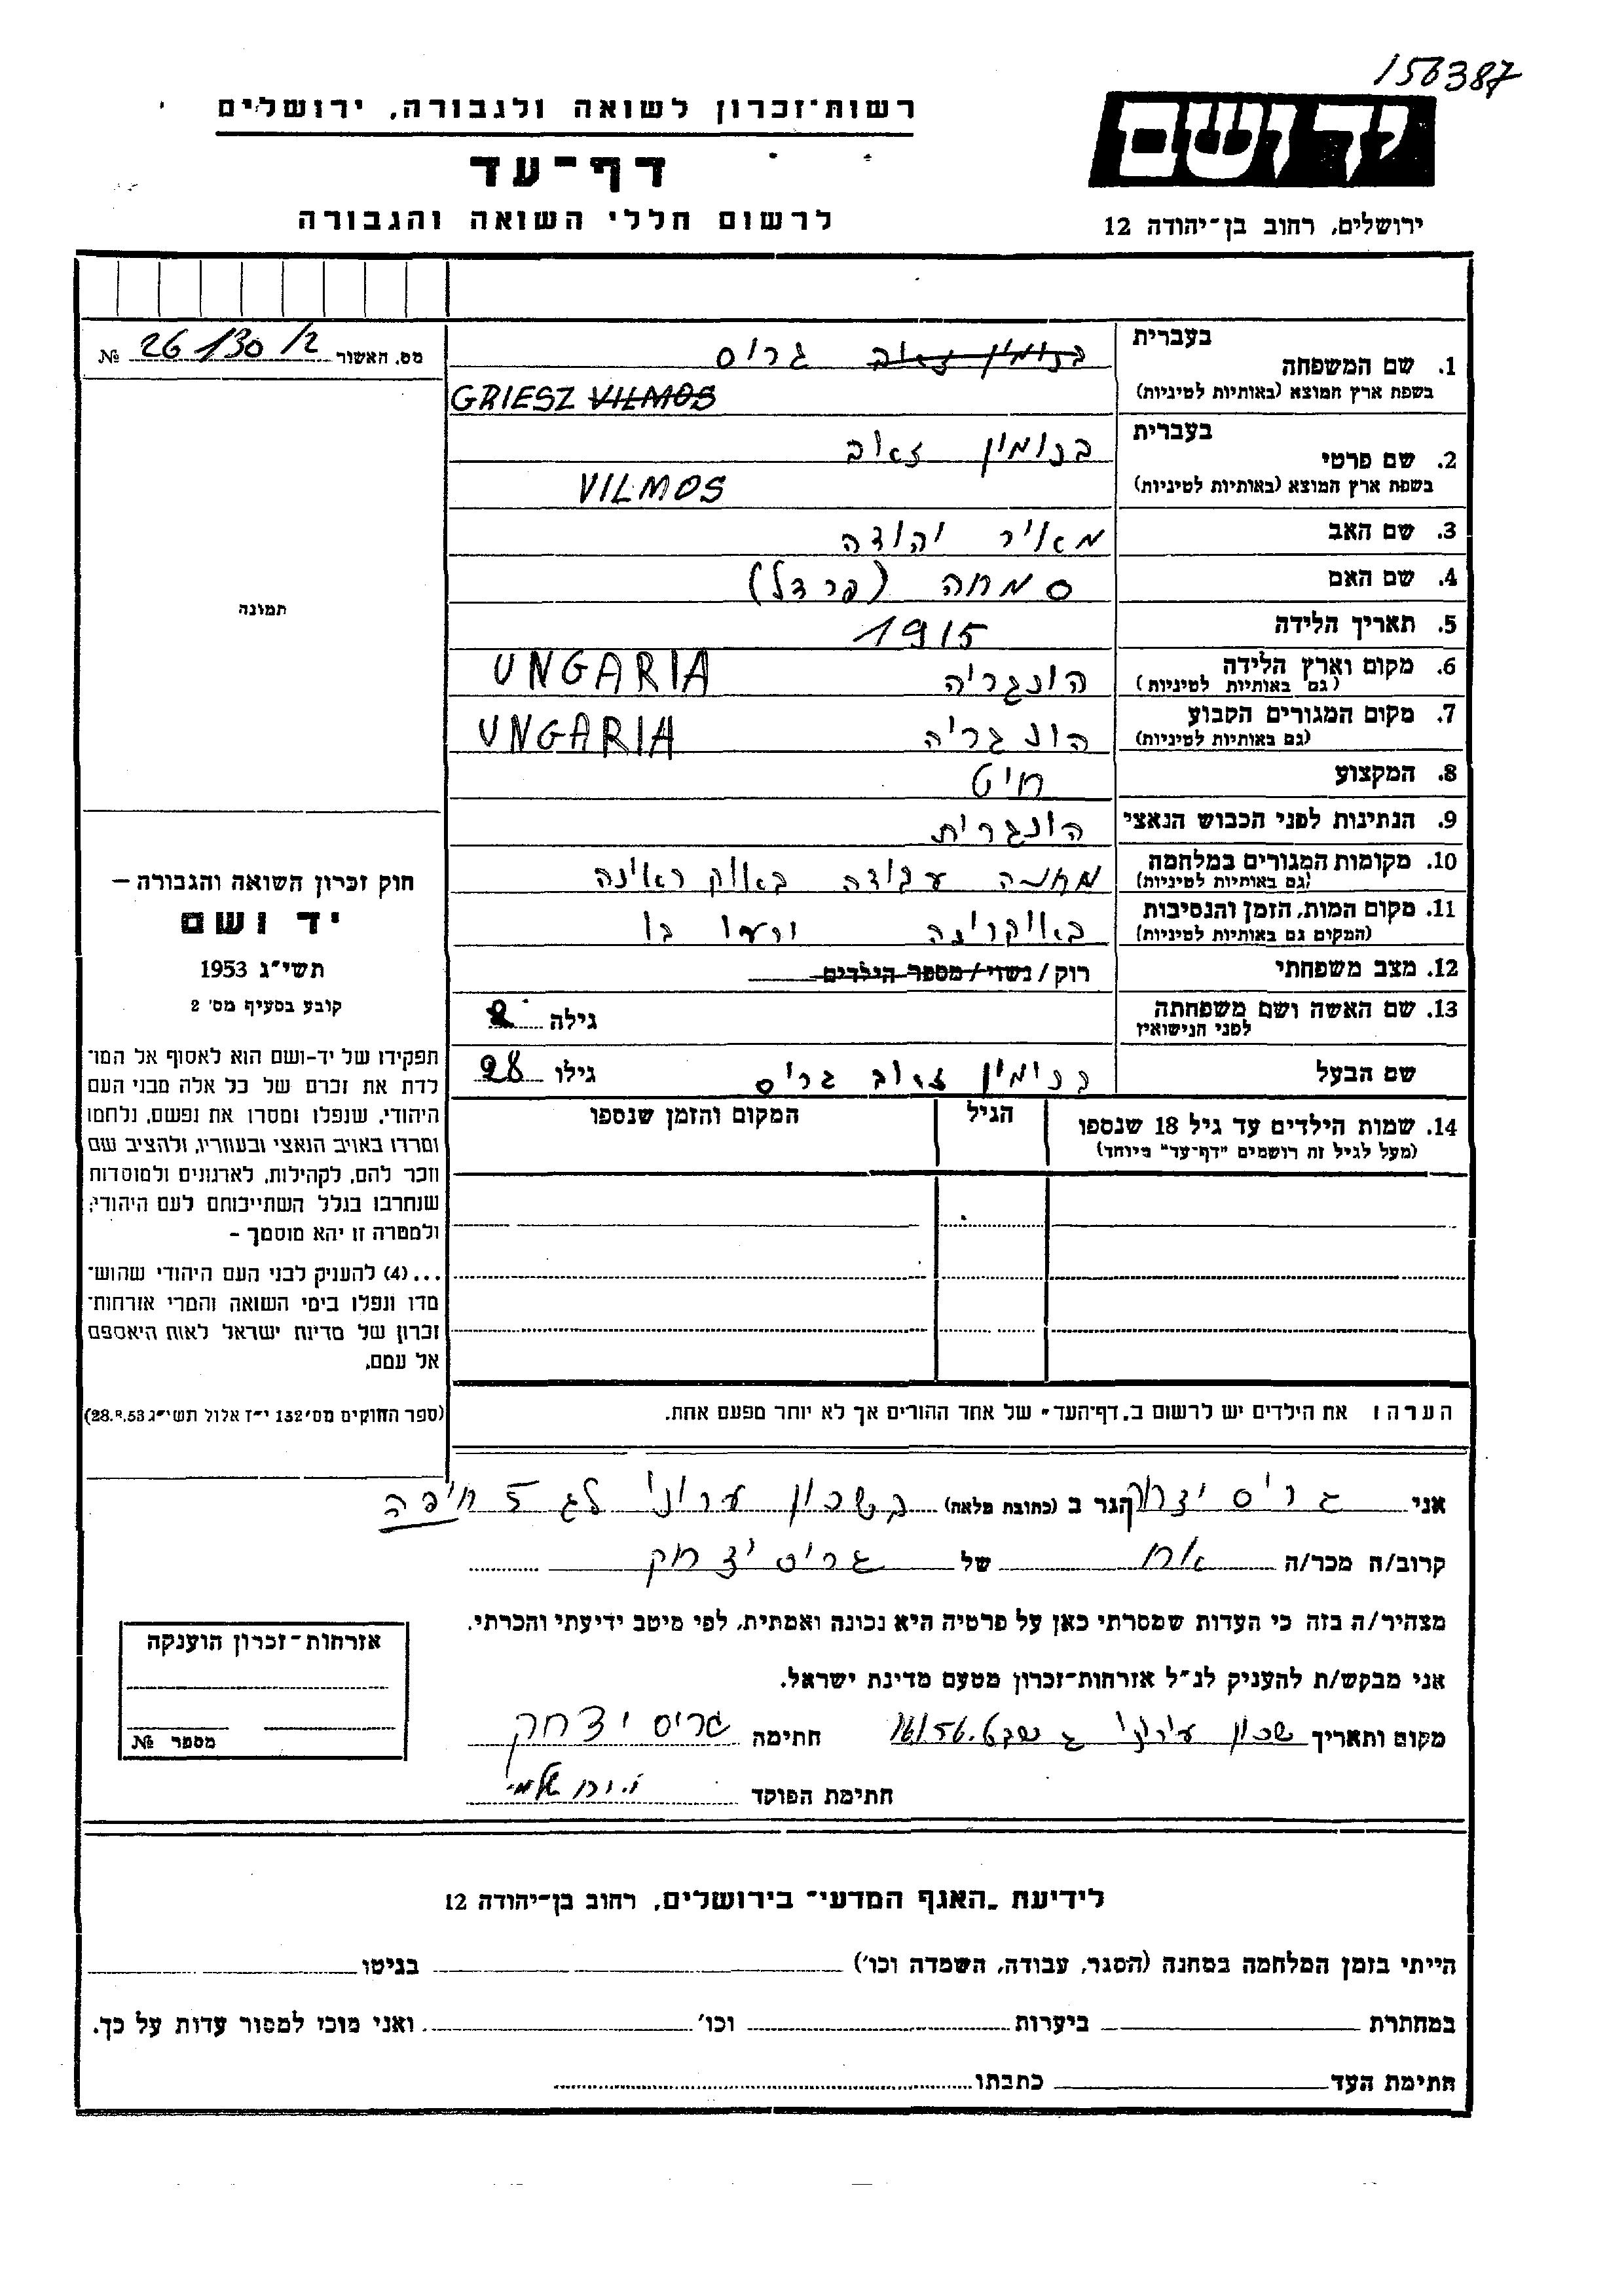 156387
יד ושם
ירושלים, רחוב בן־יהודה 12
רשות־זכרון לשואה ולגבורה, ירושלים
דף־עד
לרשום חללי השואה והגבורה
מס. האשור 26130/2 №
1. שם המשפחה
בעברית
בנימין זאב גריס
בשפת ארץ המוצא (באותיות לטיניות)
GRIESZ VILMOS
2. שם פרטי
בעברית
בנימין זאב
בשפת ארץ המוצא (באותיות לטיניות)
VILMOS
3. שם האב מאיר יהודה
4. שם האם סמחה (פרדל)
5. תאריך הלידה 1915
6. מקום וארץ הלידה הונגריה UNGARIA
(גם באותיות לטיניות)
7. מקום המגורים הקבוע הונגריה UNGARIA
(גם באותיות לטיניות)
8. המקצוע חיט
9. הנתינות לפני הכבוש הנאצי הונגרית
10. מקומות המגורים במלחמה מחנה עבודה באוקראינה
(גם באותיות לטיניות)
11. מקום המות, הזמן והנסיבות באוקרינה
(המקום גם באותיות לטיניות)
12. מצב משפחתי רוק / נשוי / מספר הילדים
13. שם האשה ושם משפחתה
לפני הנישואין
גילה
שם הבעל בנימין זאב גריס גילו 28
14. שמות הילדים עד גיל 18 שנספו הגיל המקום והזמן שנספו
(מעל לגיל זה רושמים "דף־עד" מיוחד)
הערה: את הילדים יש לרשום ב"דף־העד" של אחד ההורים אך לא יותר מפעם אחת.
תמונה
חוק זכרון השואה והגבורה —
יד ושם
תשי"ג 1953
קובע בסעיף מס' 2
תפקידו של יד־ושם הוא לאסוף אל המו־
לדת את זכרם של כל אלה מבני העם
היהודי, שנפלו ומסרו את נפשם, נלחמו
ומרדו באויב הנאצי ובעוזריו, ולהציב שם
וזכר להם, לקהילות, לארגונים ולמוסדות
שנחרבו בגלל השתייכותם לעם היהודי;
ולמטרה זו יהא מוסמך –
...(4) להעניק לבני העם היהודי שהוש־
מדו ונפלו בימי השואה והמרי אזרחות־
זכרון של מדינת ישראל לאות היאספם
אל עמם.
(ספר החוקים מס' 132 י"ז אלול תשי"ג 28.8.53)
אני גריס יצחק הגר ב (כתובת מלאה) בשכון עירוני לג 5 חיפה
קרוב/ה מכר/ה אח של גריס יצחק
מצהיר/ה בזה כי העדות שמסרתי כאן על פרטיה היא נכונה ואמתית, לפי מיטב ידיעתי והכרתי.
אני מבקש/ת להעניק לנ"ל אזרחות־זכרון מטעם מדינת ישראל.
מקום ותאריך שכון עירוני ג שבט חתימה גריס יצחק
חתימת הפוקד
אזרחות־זכרון הוענקה
מספר №
לידיעת "האגף המדעי" בירושלים, רחוב בן־יהודה 12
הייתי בזמן המלחמה במחנה (הסגר, עבודה, השמדה וכו') בגיטו
במחתרת ביערות וכו' ואני מוכן למסור עדות על כך.
חתימת העד כתבתו